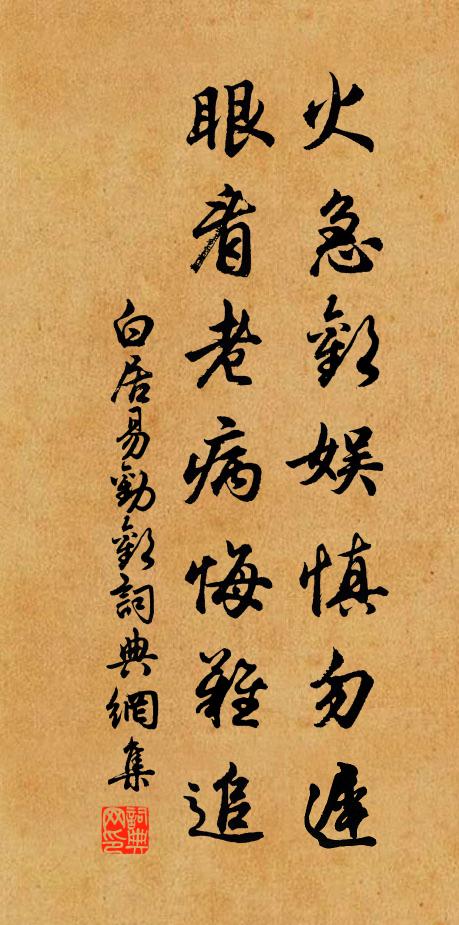 火急歡娛慎勿遲
眼看老病悔難追
白居易勸歡詞典網集
詞典網印